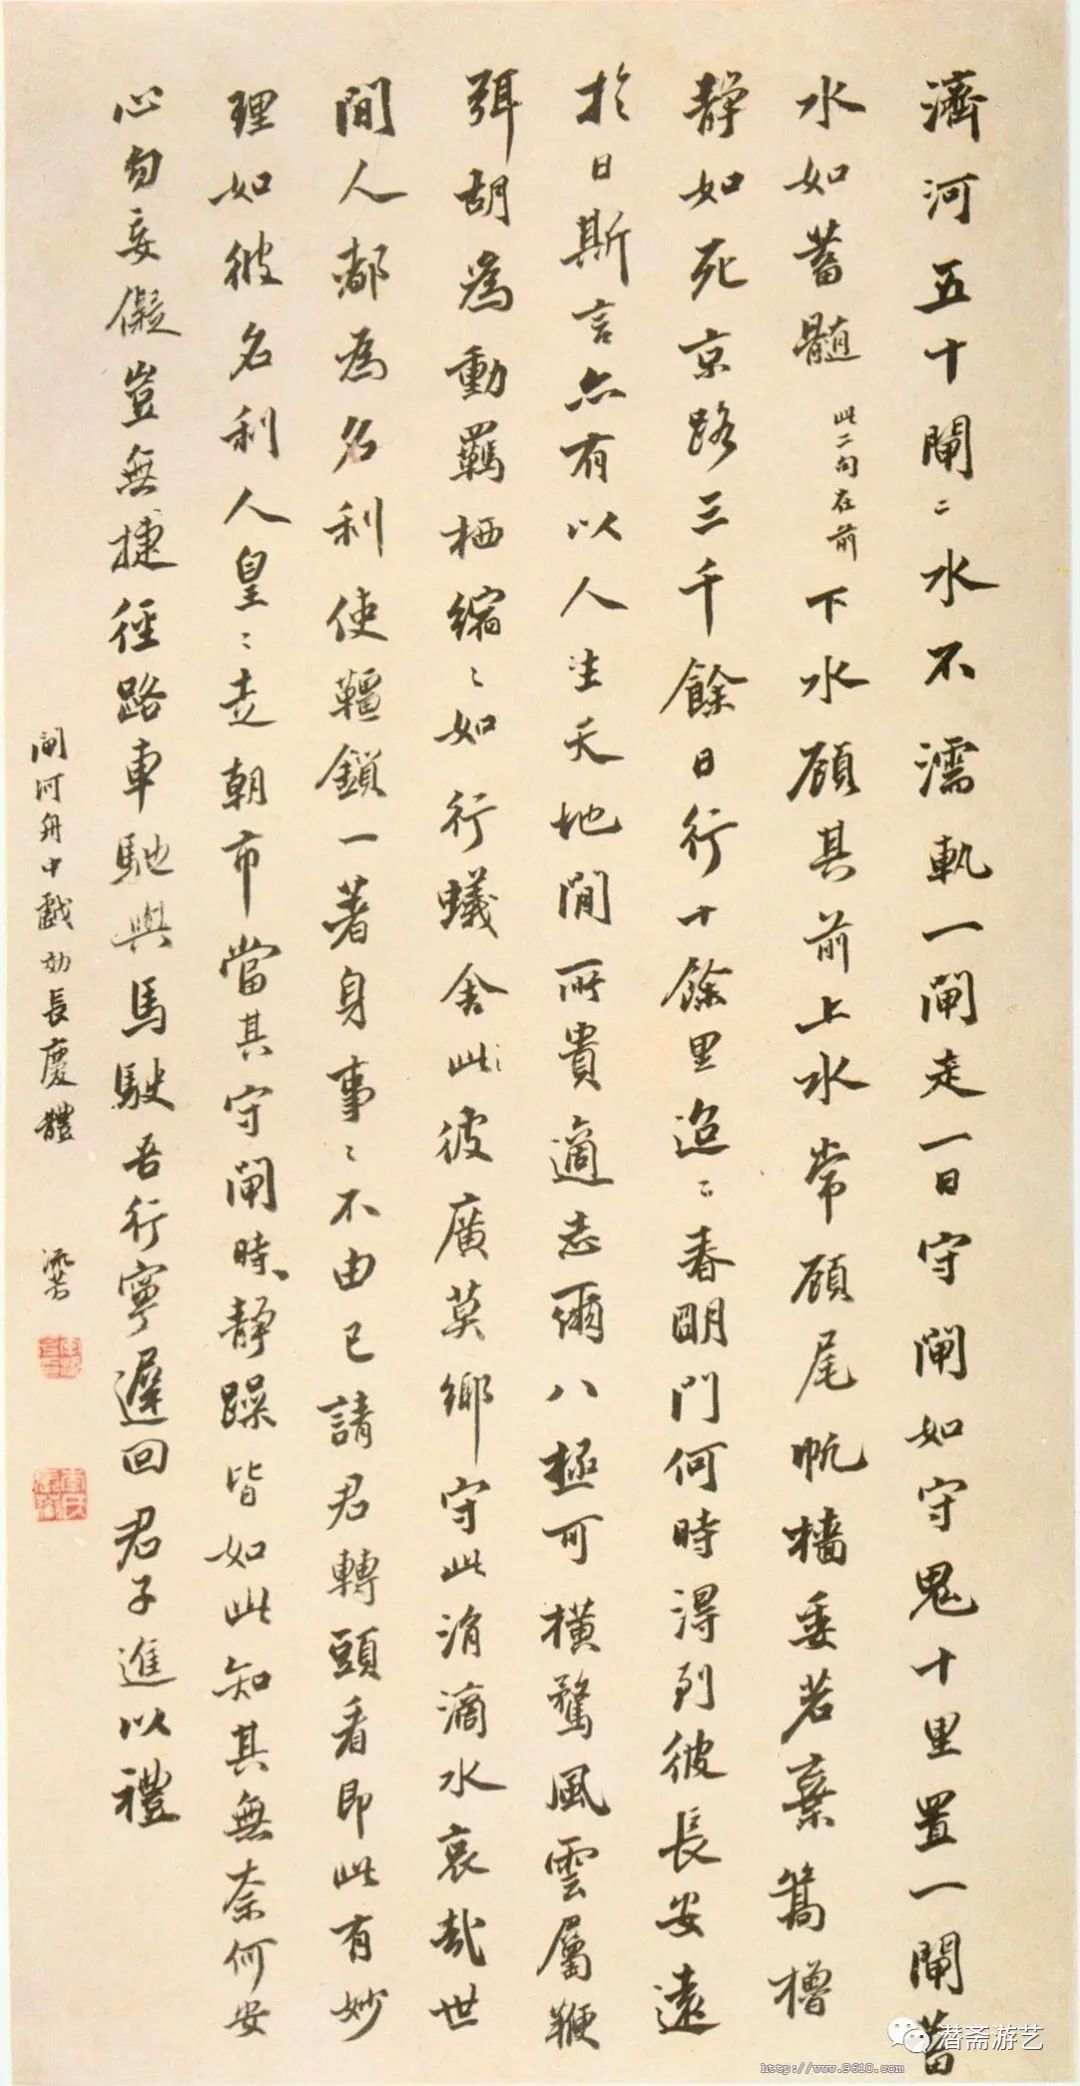 濟河五十閘〻水不濡軌一閘走一日守閘如守鬼十里置一閘蓄
水如蓄髓此二句在前下水顧其前上水常顧尾帆檣委若棄篙櫓
靜如死京路三千餘日行十餘里迢〻春明門何時得到彼長安遠
於日斯言亦有以人生天地間所貴適志爾八極可橫騖風雲屬鞭
弭胡為動羈栖縮〻如行蟻舍此彼廣莫鄉守此涓滴水哀哉世
間人都為名利使韁鎖一著身事〻不由己請君轉頭看即此有妙
理如彼名利人皇〻走朝市當其守閘時靜躁皆如此知其無奈何安
心勿妄儗豈無捷徑路車馳與馬駛吾行寧遲回君子進以禮
閘河舟中戲効長慶體
流芳
潜斋游艺
http://www.9610.com